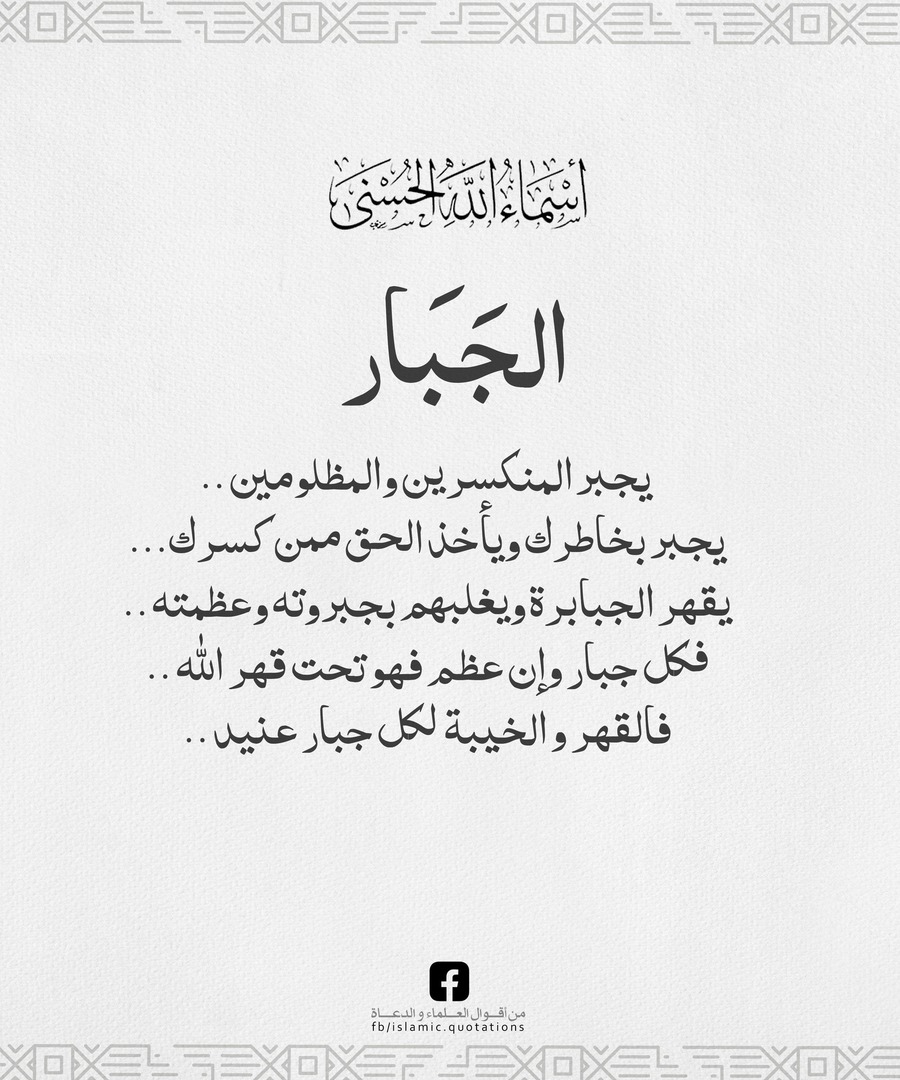 أَسْمَاءُ اللَّهِ الْحُسْنَى
الجَبَار
يجبر المنكسرين والمظلومين..
يجبر بخاطرك ويأخذ الحق ممن كسرك...
يقهر الجبابرة ويغلبهم بجبروته وعظمته..
فكل جبار وإن عظم فهو تحت قهر الله..
فالقهر و الخيبة لكل جبار عنيد..
من أقـوال العـلماء و الدعـاة
fb/islamic.quotations